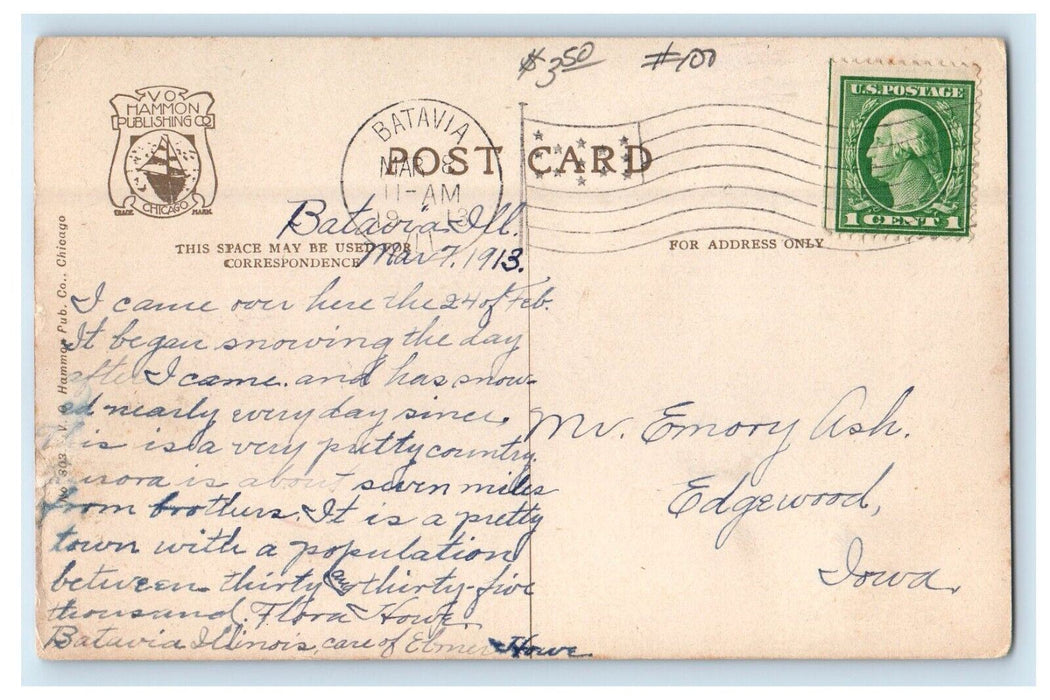 $3.50 #100
V.O.
HAMMON
PUBLISHING CO
CHICAGO
TRADE MARK
BATAVIA
MAR 8
11-AM
1913
ILL.
POST CARD
U.S. POSTAGE
1 CENT 1
THIS SPACE MAY BE USED FOR
CORRESPONDENCE
FOR ADDRESS ONLY
No. 303 V. O. Hammon Pub. Co., Chicago
Batavia Ill.
Mar 7, 1913.
I came over here the 24 of Feb.
It began snowing the day
after I came and has snow-
ed nearly every day since.
This is a very pretty country.
Aurora is about seven miles
from brothers. It is a pretty
town with a population
between thirty and thirty-five
thousand. Flora Howe.
Batavia Illinois, care of Elmer Howe
Mr. Emory Ash.
Edgewood,
Iowa.